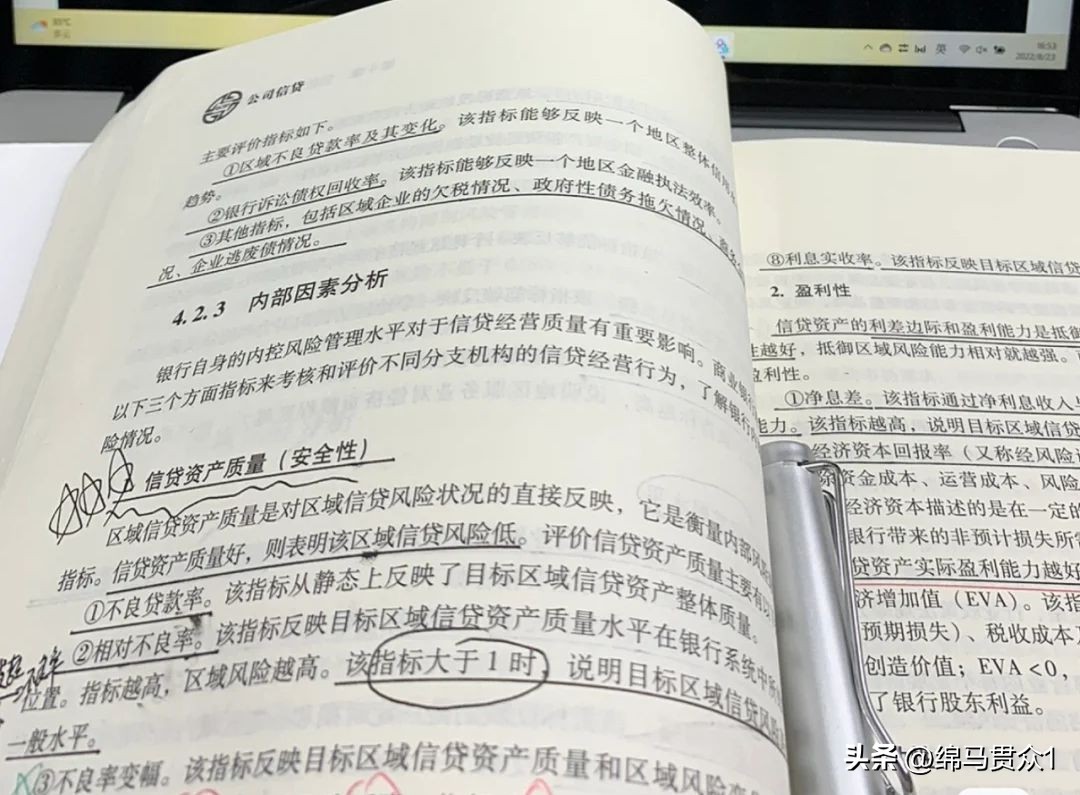 33°C
多云
英
16:53
2022/8/23
公司信贷
主要评价指标如下。
①区域不良贷款率及其变化。该指标能够反映一个地区整体信用
趋势。
②银行诉讼债权回收率。该指标能够反映一个地区金融执法效率。
③其他指标，包括区域企业的欠税情况、政府性债务拖欠情况、
况、企业逃废债情况。
4.2.3 内部因素分析
银行自身的内控风险管理水平对于信贷经营质量有重要影响。商业银行
以下三个方面指标来考核和评价不同分支机构的信贷经营行为，了解银行的
险情况。
信贷资产质量（安全性）
区域信贷资产质量是对区域信贷风险状况的直接反映，它是衡量内部风险
指标。信贷资产质量好，则表明该区域信贷风险低。评价信贷资产质量主要有以
①不良贷款率。该指标从静态上反映了目标区域信贷资产整体质量。
②相对不良率。该指标反映目标区域信贷资产质量水平在银行系统中所
位置。指标越高，区域风险越高。该指标大于1时，说明目标区域信贷风险
一般水平。
③不良率变幅。该指标反映目标区域信贷资产质量和区域风险变
⑧利息实收率。该指标反映目标区域信贷
2. 盈利性
信贷资产的利差边际和盈利能力是抵御
越好，抵御区域风险能力相对就越强。
盈利性。
①净息差。该指标通过净利息收入与
能力。该指标越高，说明目标区域信贷
经济资本回报率（又称经风险
资金成本、运营成本、风险
经济资本描述的是在一定的
银行带来的非预计损失所
贷资产实际盈利能力越好
济增加值（EVA）。该指
预期损失）、税收成本
创造价值；EVA<0，
了银行股东利益。
头条 @绵马贯众1